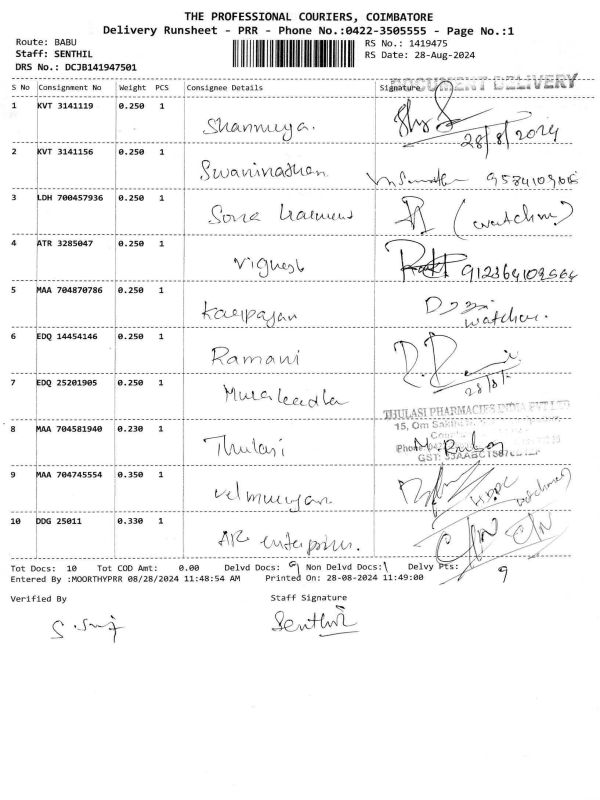 THE PROFESSIONAL COURIERS, COIMBATORE
Delivery Runsheet - PRR - Phone No.:0422-3505555 - Page No.:1
Route: BABU
Staff: SENTHIL
DRS No.: DCJB141947501
RS No.: 1419475
RS Date: 28-Aug-2024
DOCUMENT DELIVERY
S No Consignment No Weight PCS Consignee Details Signature
1 KVT 3141119 0.250 1 Shanmuga. 28/8/2024
2 KVT 3141156 0.250 1 Swaninathan
3 LDH 700457936 0.250 1 Sona (watchman)
4 ATR 3285047 0.250 1 Vignesh
5 MAA 704870786 0.250 1 Karpagan watchman.
6 EDQ 14454146 0.250 1 Ramani 28/8/
7 EDQ 25201905 0.250 1
THULASI PHARMACIES INDIA PVT LTD
8 MAA 704581940 0.230 1 Thulasi
15, Om
Phone
GST:
9 MAA 704745554 0.350 1 Velmurugan watchman
10 DDG 25011 0.330 1 AR enterprises. C/N C/N
Tot Docs: 10 Tot COD Amt: 0.00 Delvd Docs: 9 Non Delvd Docs: 1 Delvy Pts: 9
Entered By :MOORTHYPRR 08/28/2024 11:48:54 AM Printed On: 28-08-2024 11:49:00
Verified By Staff Signature
Senthil